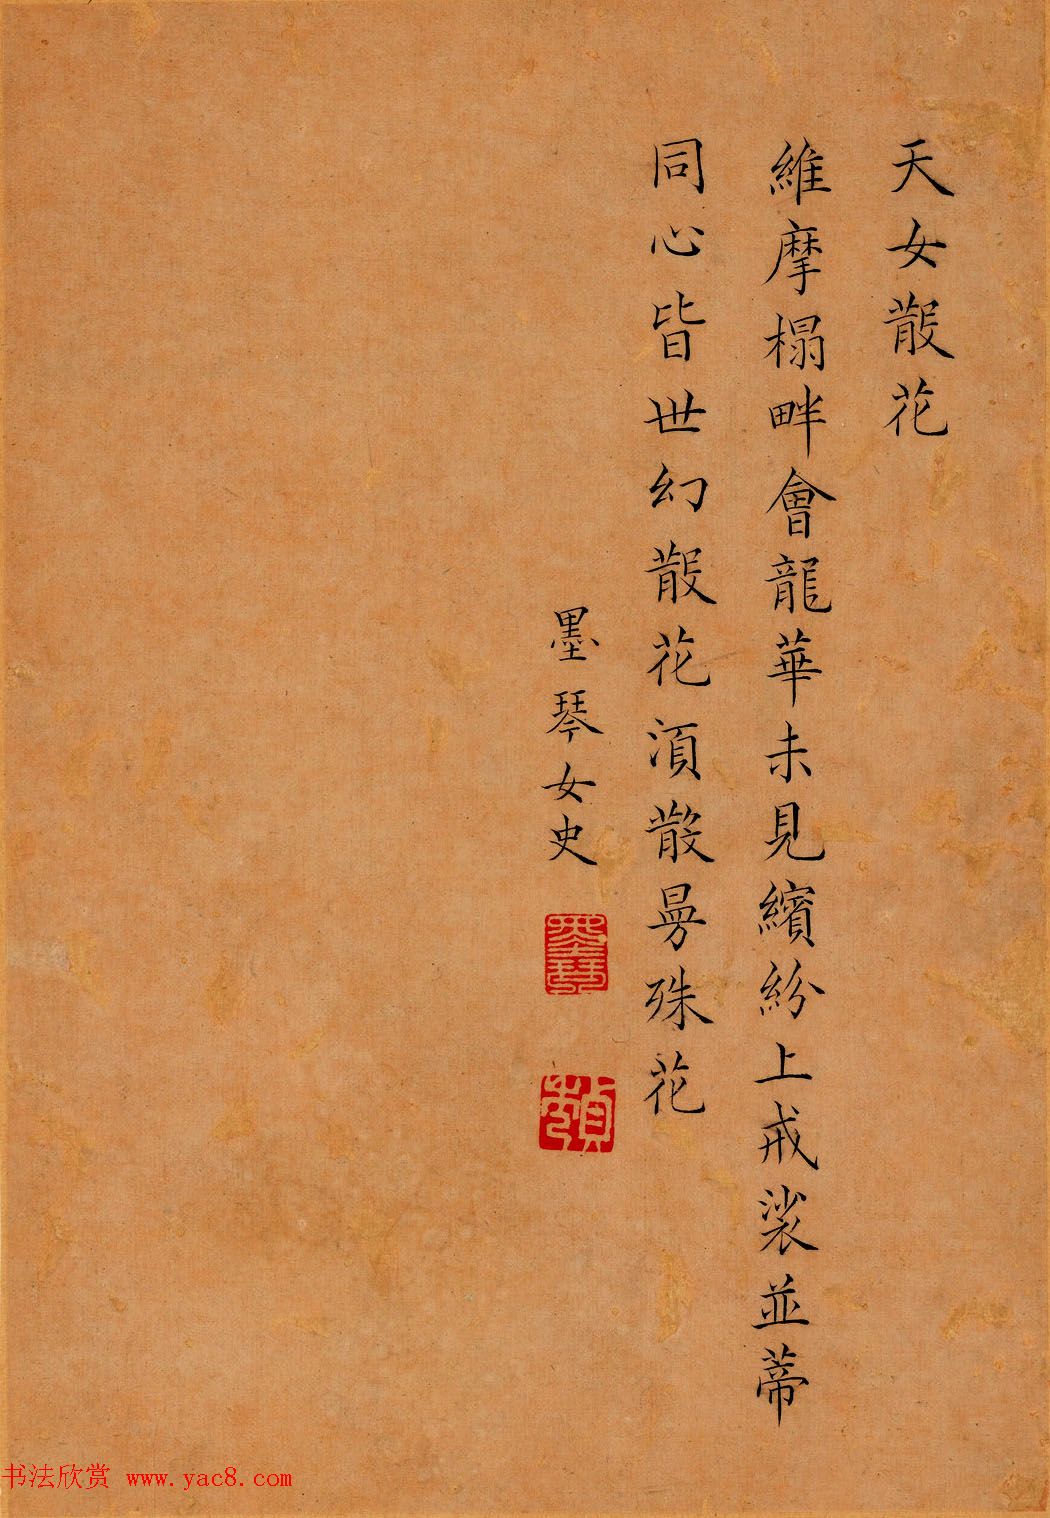 天女散花
維摩榻畔會龍華未見繽紛上戒裟並蒂
同心皆世幻散花須散曼殊花
墨琴女史
墨琴
书法欣赏 www.yac8.com